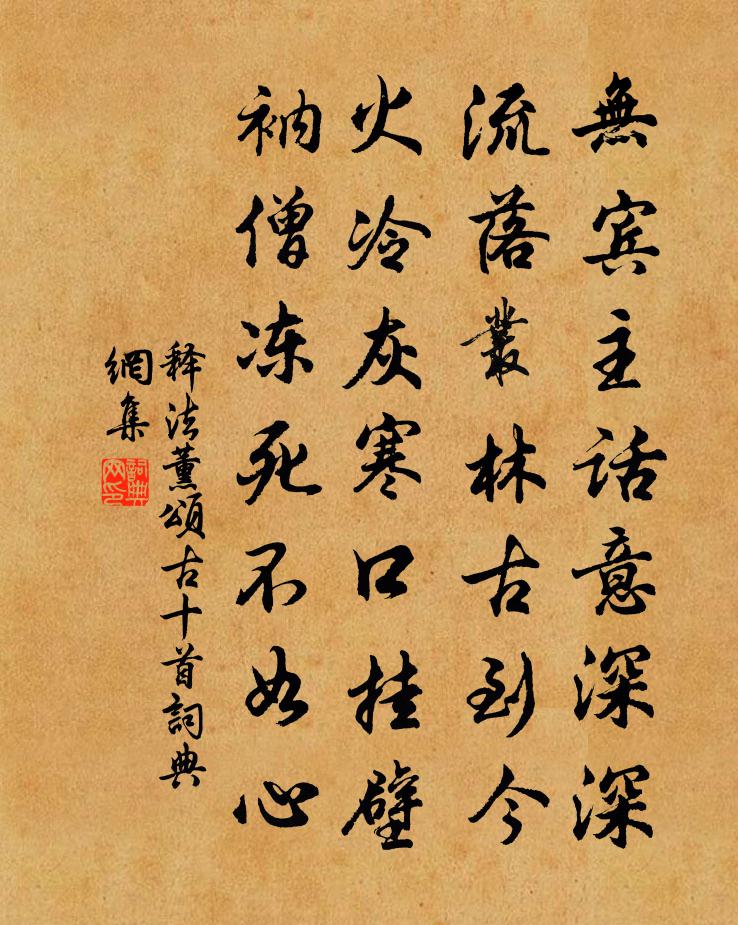 無賓主話意深深
流落叢林古到今
火冷灰寒口挂壁
衲僧冻死不如心
释法薰頌古十首詞典
網集
詞典
网印